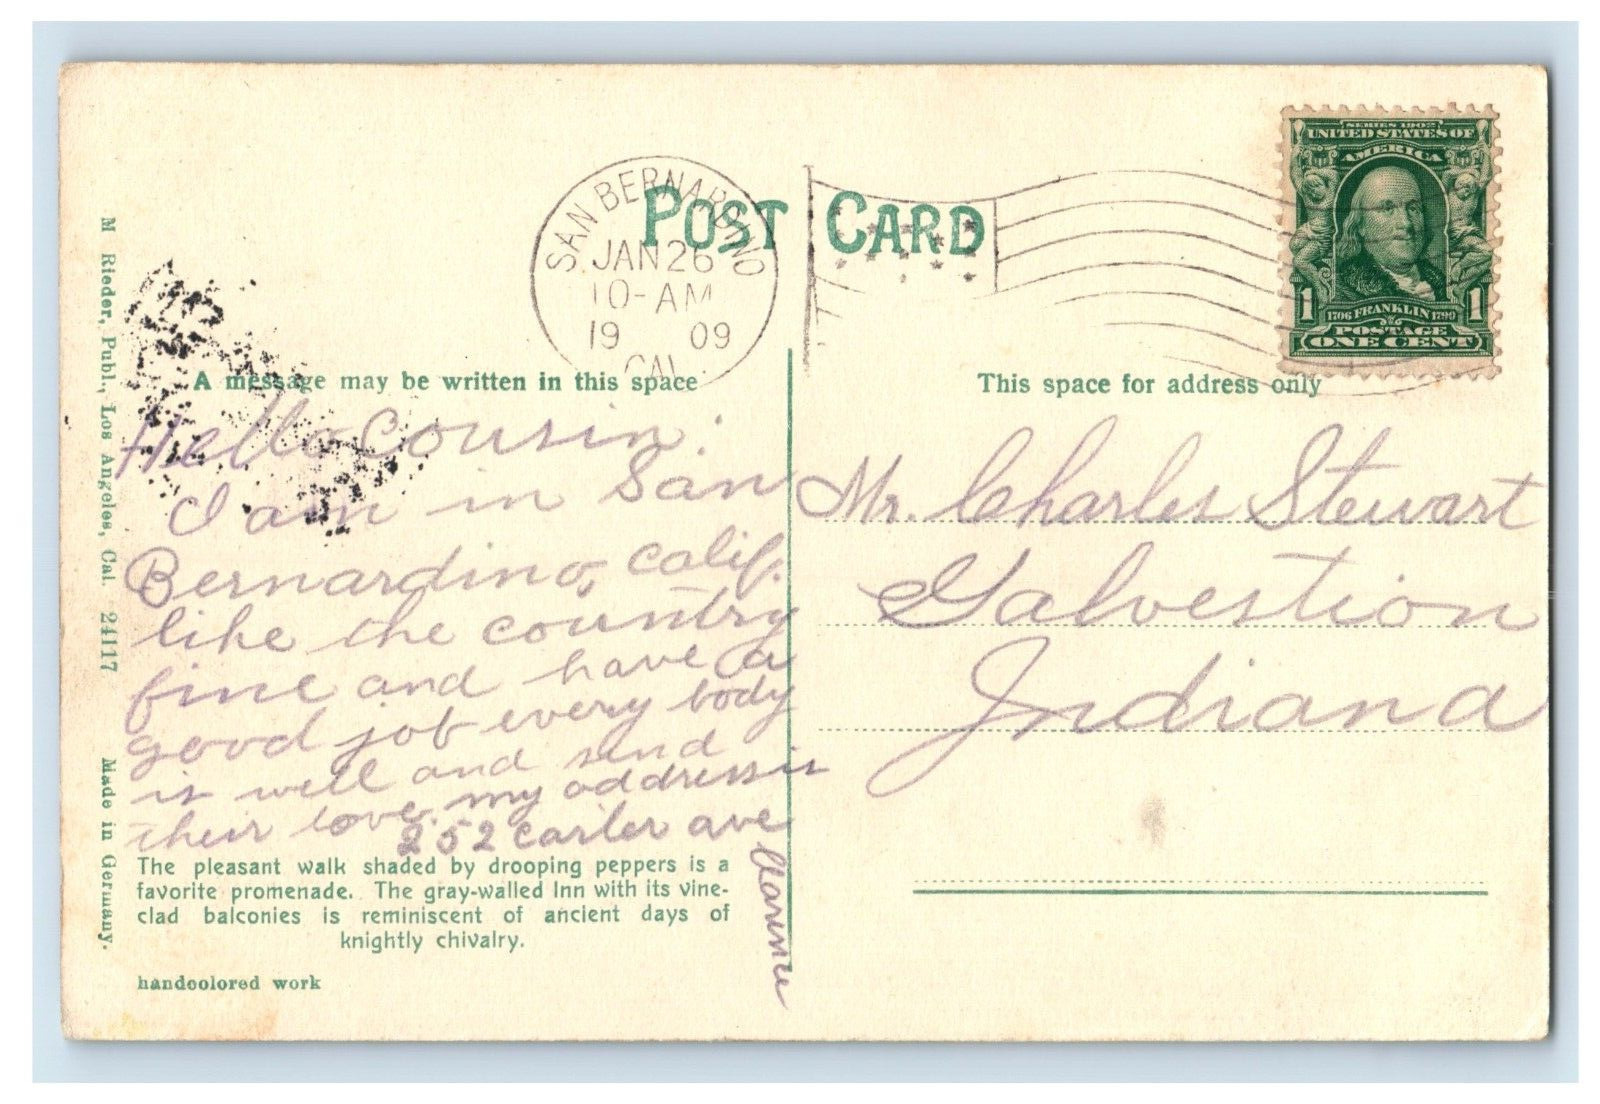 POST CARD
SAN BERNARDINO
JAN 26
10-AM
19 09
CAL.
SERIES 1902
UNITED STATES OF
AMERICA
1 1706 FRANKLIN 1790 1
POSTAGE
ONE CENT
A message may be written in this space
Hello Cousin.
I am in San
Bernardino, Calif.
like the country
fine and have a
good job every body
is well and send
their love. my address is
252 Carter ave
Clarence
The pleasant walk shaded by drooping peppers is a
favorite promenade. The gray-walled Inn with its vine-
clad balconies is reminiscent of ancient days of
knightly chivalry.
handcolored work
M Rieder, Publ., Los Angeles, Cal. 24117 Made in Germany.
This space for address only
Mr. Charles Stewart
Galvestion
Indiana